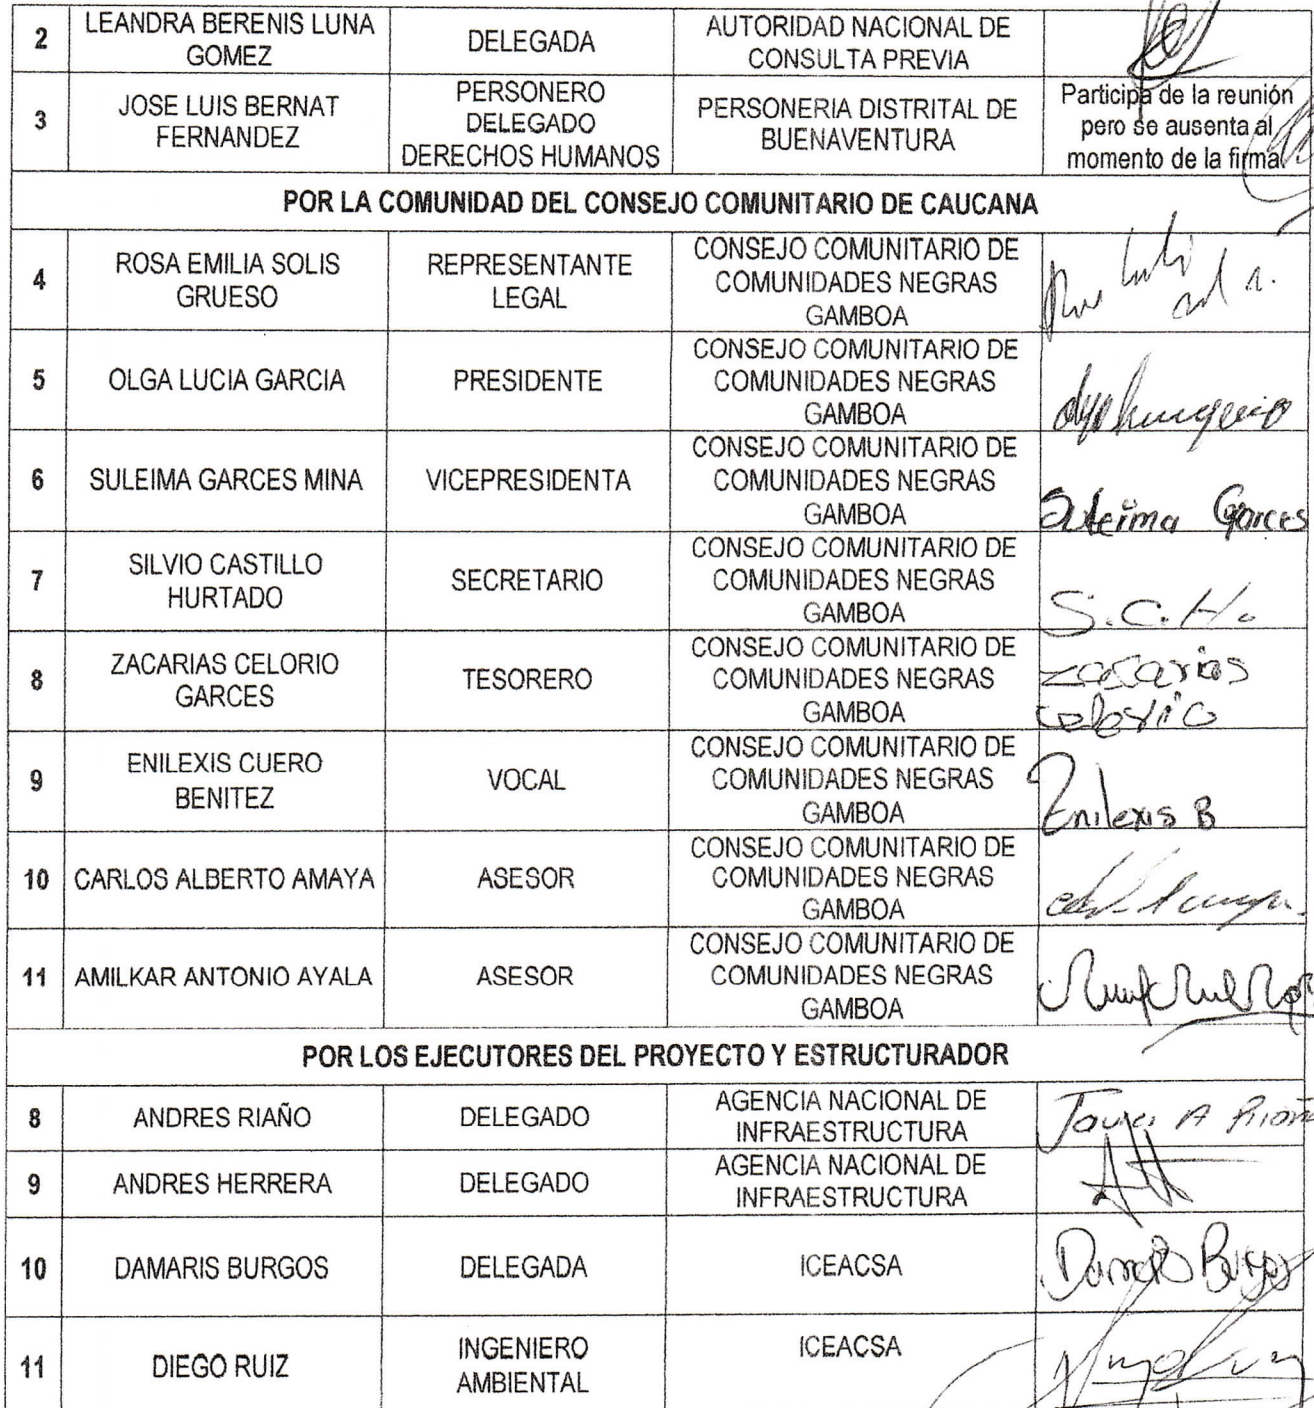 2
LEANDRA BERENIS LUNA
GOMEZ
DELEGADA
AUTORIDAD NACIONAL DE
CONSULTA PREVIA
3
JOSE LUIS BERNAT
FERNANDEZ
PERSONERO
DELEGADO
DERECHOS HUMANOS
PERSONERIA DISTRITAL DE
BUENAVENTURA
Participa de la reunión
pero se ausenta al
momento de la firma.
POR LA COMUNIDAD DEL CONSEJO COMUNITARIO DE CAUCANA
4
ROSA EMILIA SOLIS
GRUESO
REPRESENTANTE
LEGAL
CONSEJO COMUNITARIO DE
COMUNIDADES NEGRAS
GAMBOA
5
OLGA LUCIA GARCIA
PRESIDENTE
CONSEJO COMUNITARIO DE
COMUNIDADES NEGRAS
GAMBOA
6
SULEIMA GARCES MINA
VICEPRESIDENTA
CONSEJO COMUNITARIO DE
COMUNIDADES NEGRAS
GAMBOA
Suleima Garces
7
SILVIO CASTILLO
HURTADO
SECRETARIO
CONSEJO COMUNITARIO DE
COMUNIDADES NEGRAS
GAMBOA
S.C.H.
8
ZACARIAS CELORIO
GARCES
TESORERO
CONSEJO COMUNITARIO DE
COMUNIDADES NEGRAS
GAMBOA
zacarias
celorio
9
ENILEXIS CUERO
BENITEZ
VOCAL
CONSEJO COMUNITARIO DE
COMUNIDADES NEGRAS
GAMBOA
Enilexis B
10
CARLOS ALBERTO AMAYA
ASESOR
CONSEJO COMUNITARIO DE
COMUNIDADES NEGRAS
GAMBOA
11
AMILKAR ANTONIO AYALA
ASESOR
CONSEJO COMUNITARIO DE
COMUNIDADES NEGRAS
GAMBOA
POR LOS EJECUTORES DEL PROYECTO Y ESTRUCTURADOR
8
ANDRES RIAÑO
DELEGADO
AGENCIA NACIONAL DE
INFRAESTRUCTURA
9
ANDRES HERRERA
DELEGADO
AGENCIA NACIONAL DE
INFRAESTRUCTURA
10
DAMARIS BURGOS
DELEGADA
ICEACSA
Damaris Burgos
11
DIEGO RUIZ
INGENIERO
AMBIENTAL
ICEACSA